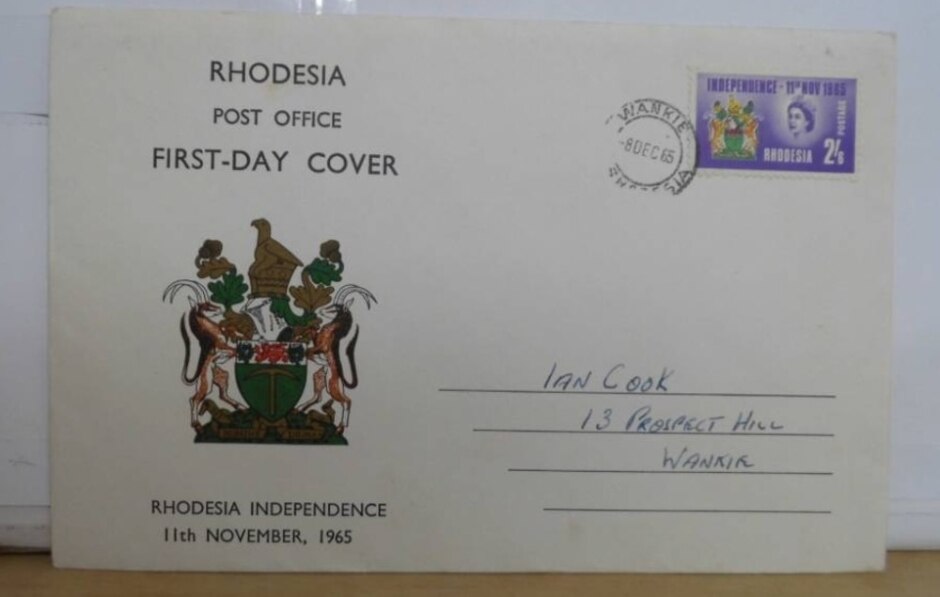 RHODESIA
POST OFFICE
FIRST-DAY COVER
WANKIE
-8 DEC 65
RHODESIA
INDEPENDENCE - 11TH NOV 1965
POSTAGE
RHODESIA 2/6
IAN COOK
13 PROSPECT HILL
WANKIE
RHODESIA INDEPENDENCE
11th NOVEMBER, 1965